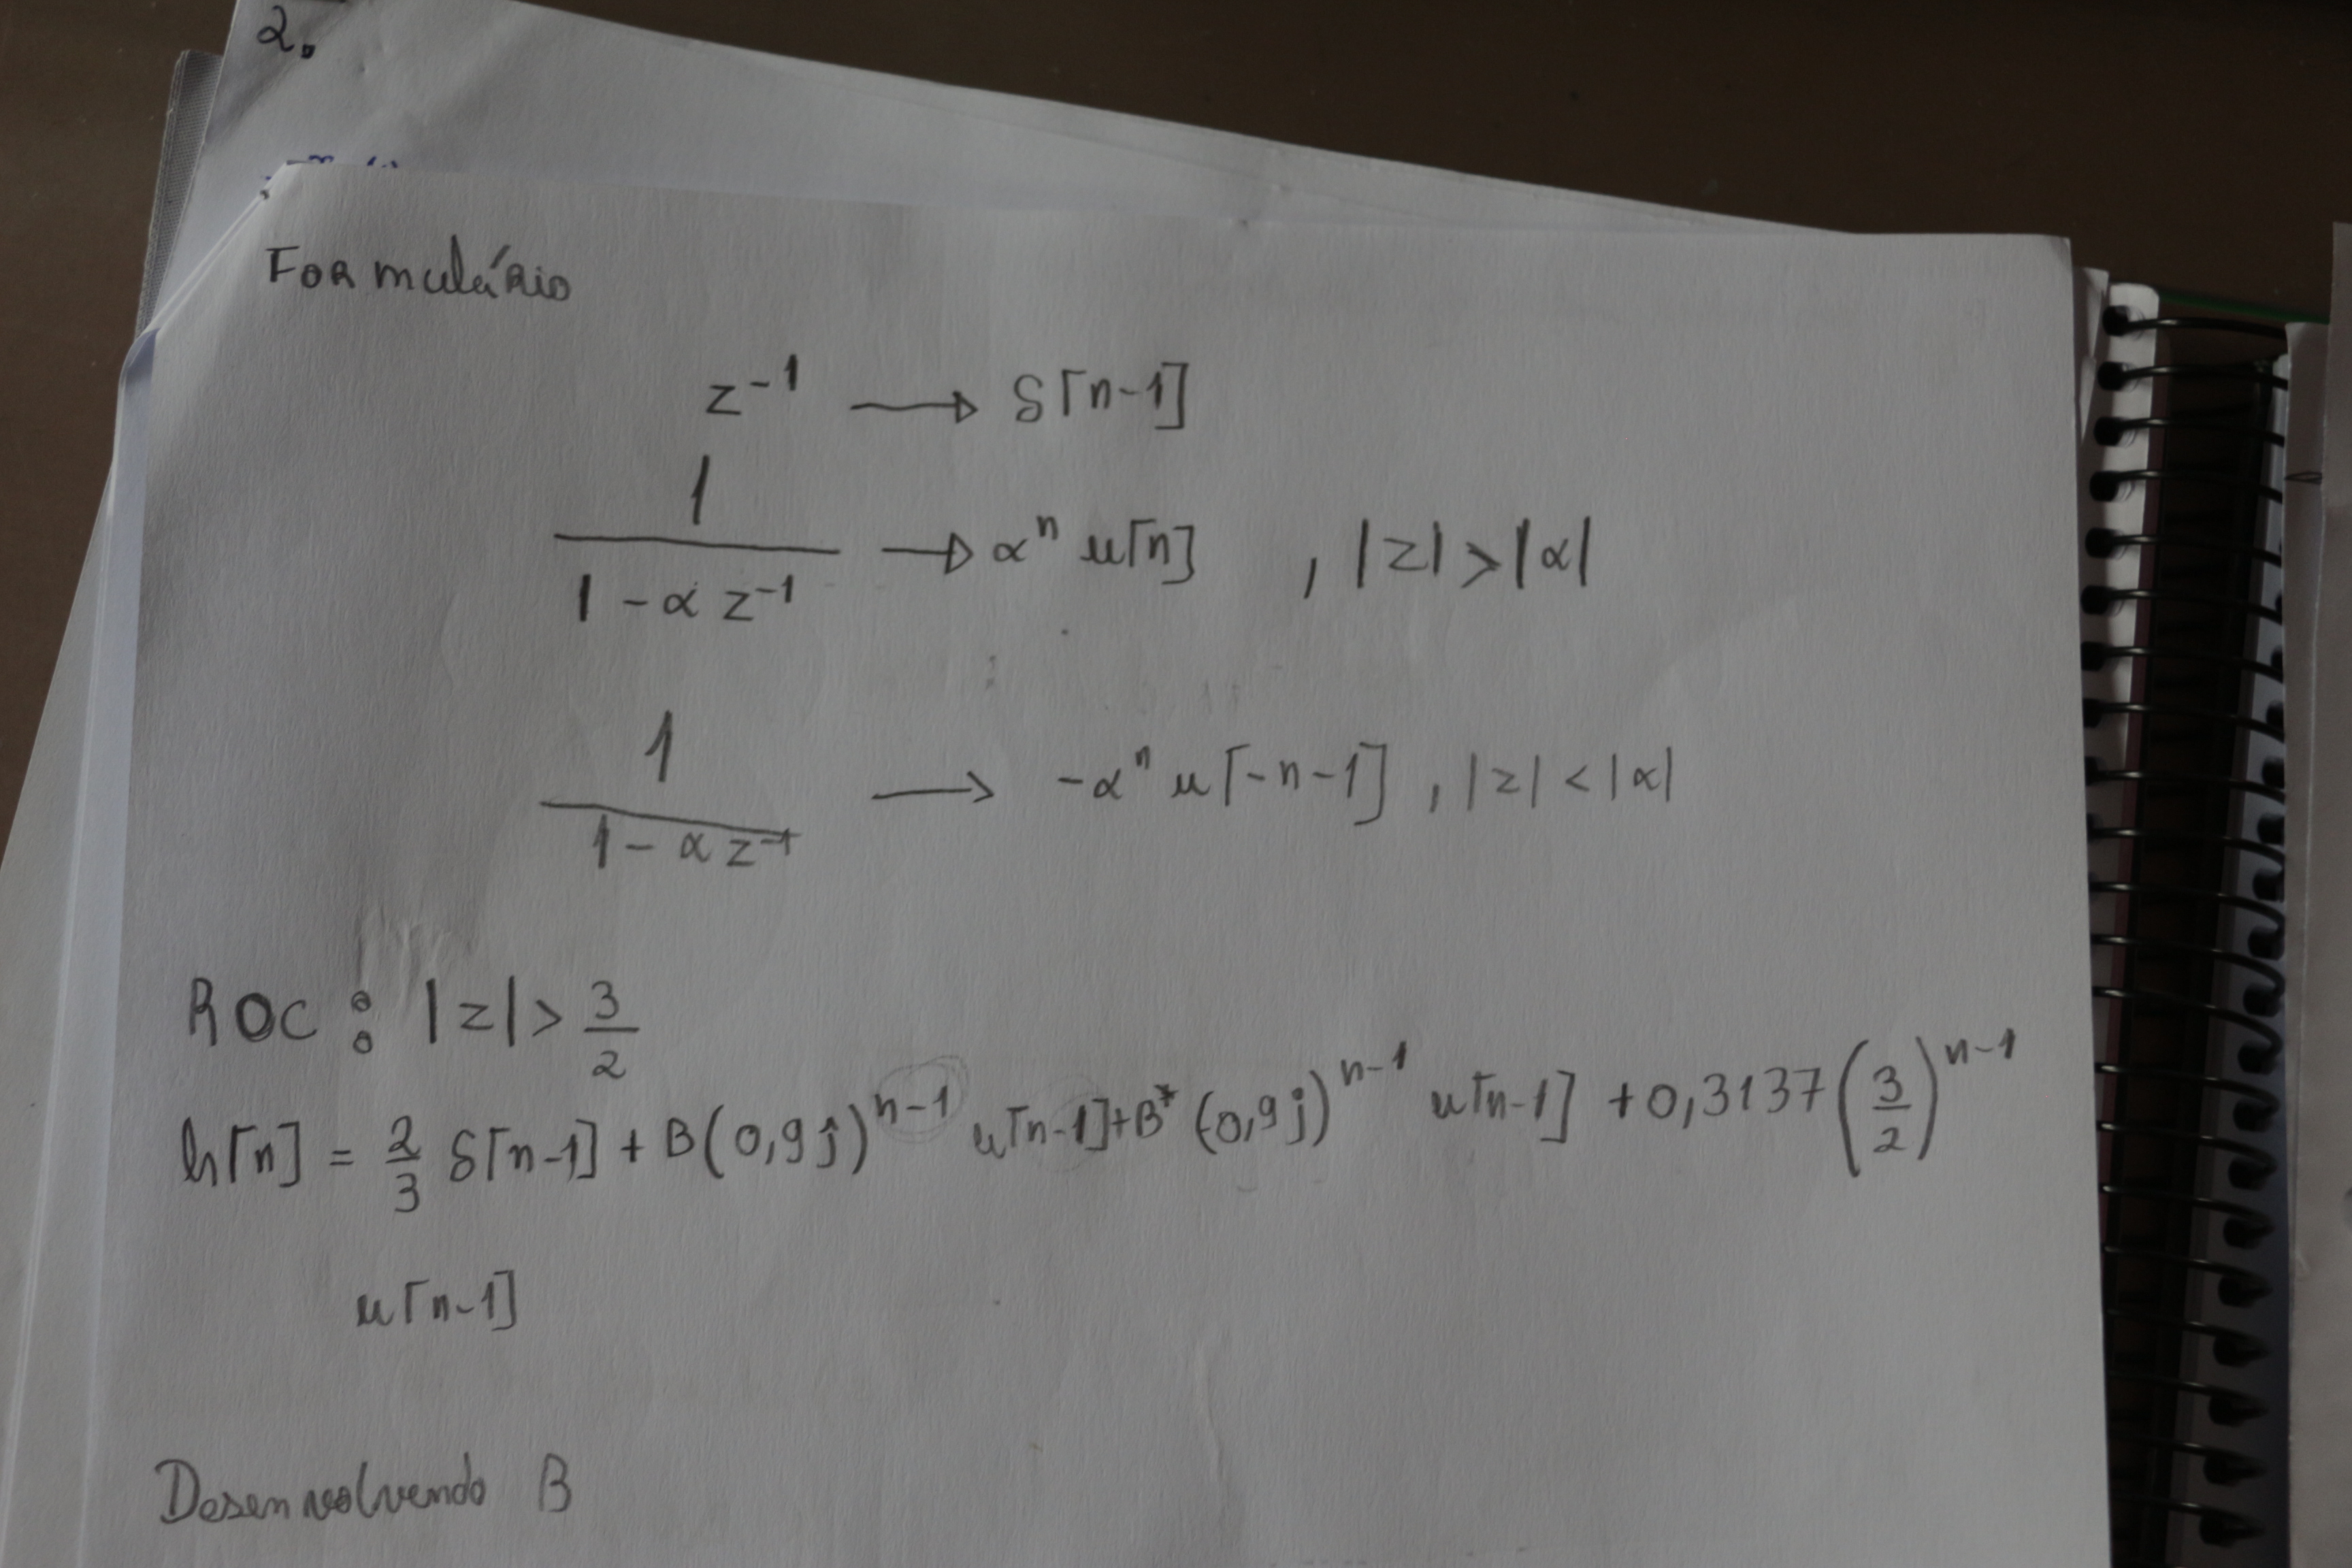 2.
Formulário
z⁻¹ → δ[n-1]
1
―――――― → αⁿ u[n] , |z| > |α|
1 - α z⁻¹
1
―――――― → -αⁿ u[-n-1] , |z| < |α|
1 - α z⁻¹
ROC : |z| > 3/2
h[n] = 2/3 δ[n-1] + B(0,9j)ⁿ⁻¹ u[n-1] + B* (0,9j)ⁿ⁻¹ u[n-1] + 0,3137 (3/2)ⁿ⁻¹
u[n-1]
Desenvolvendo B